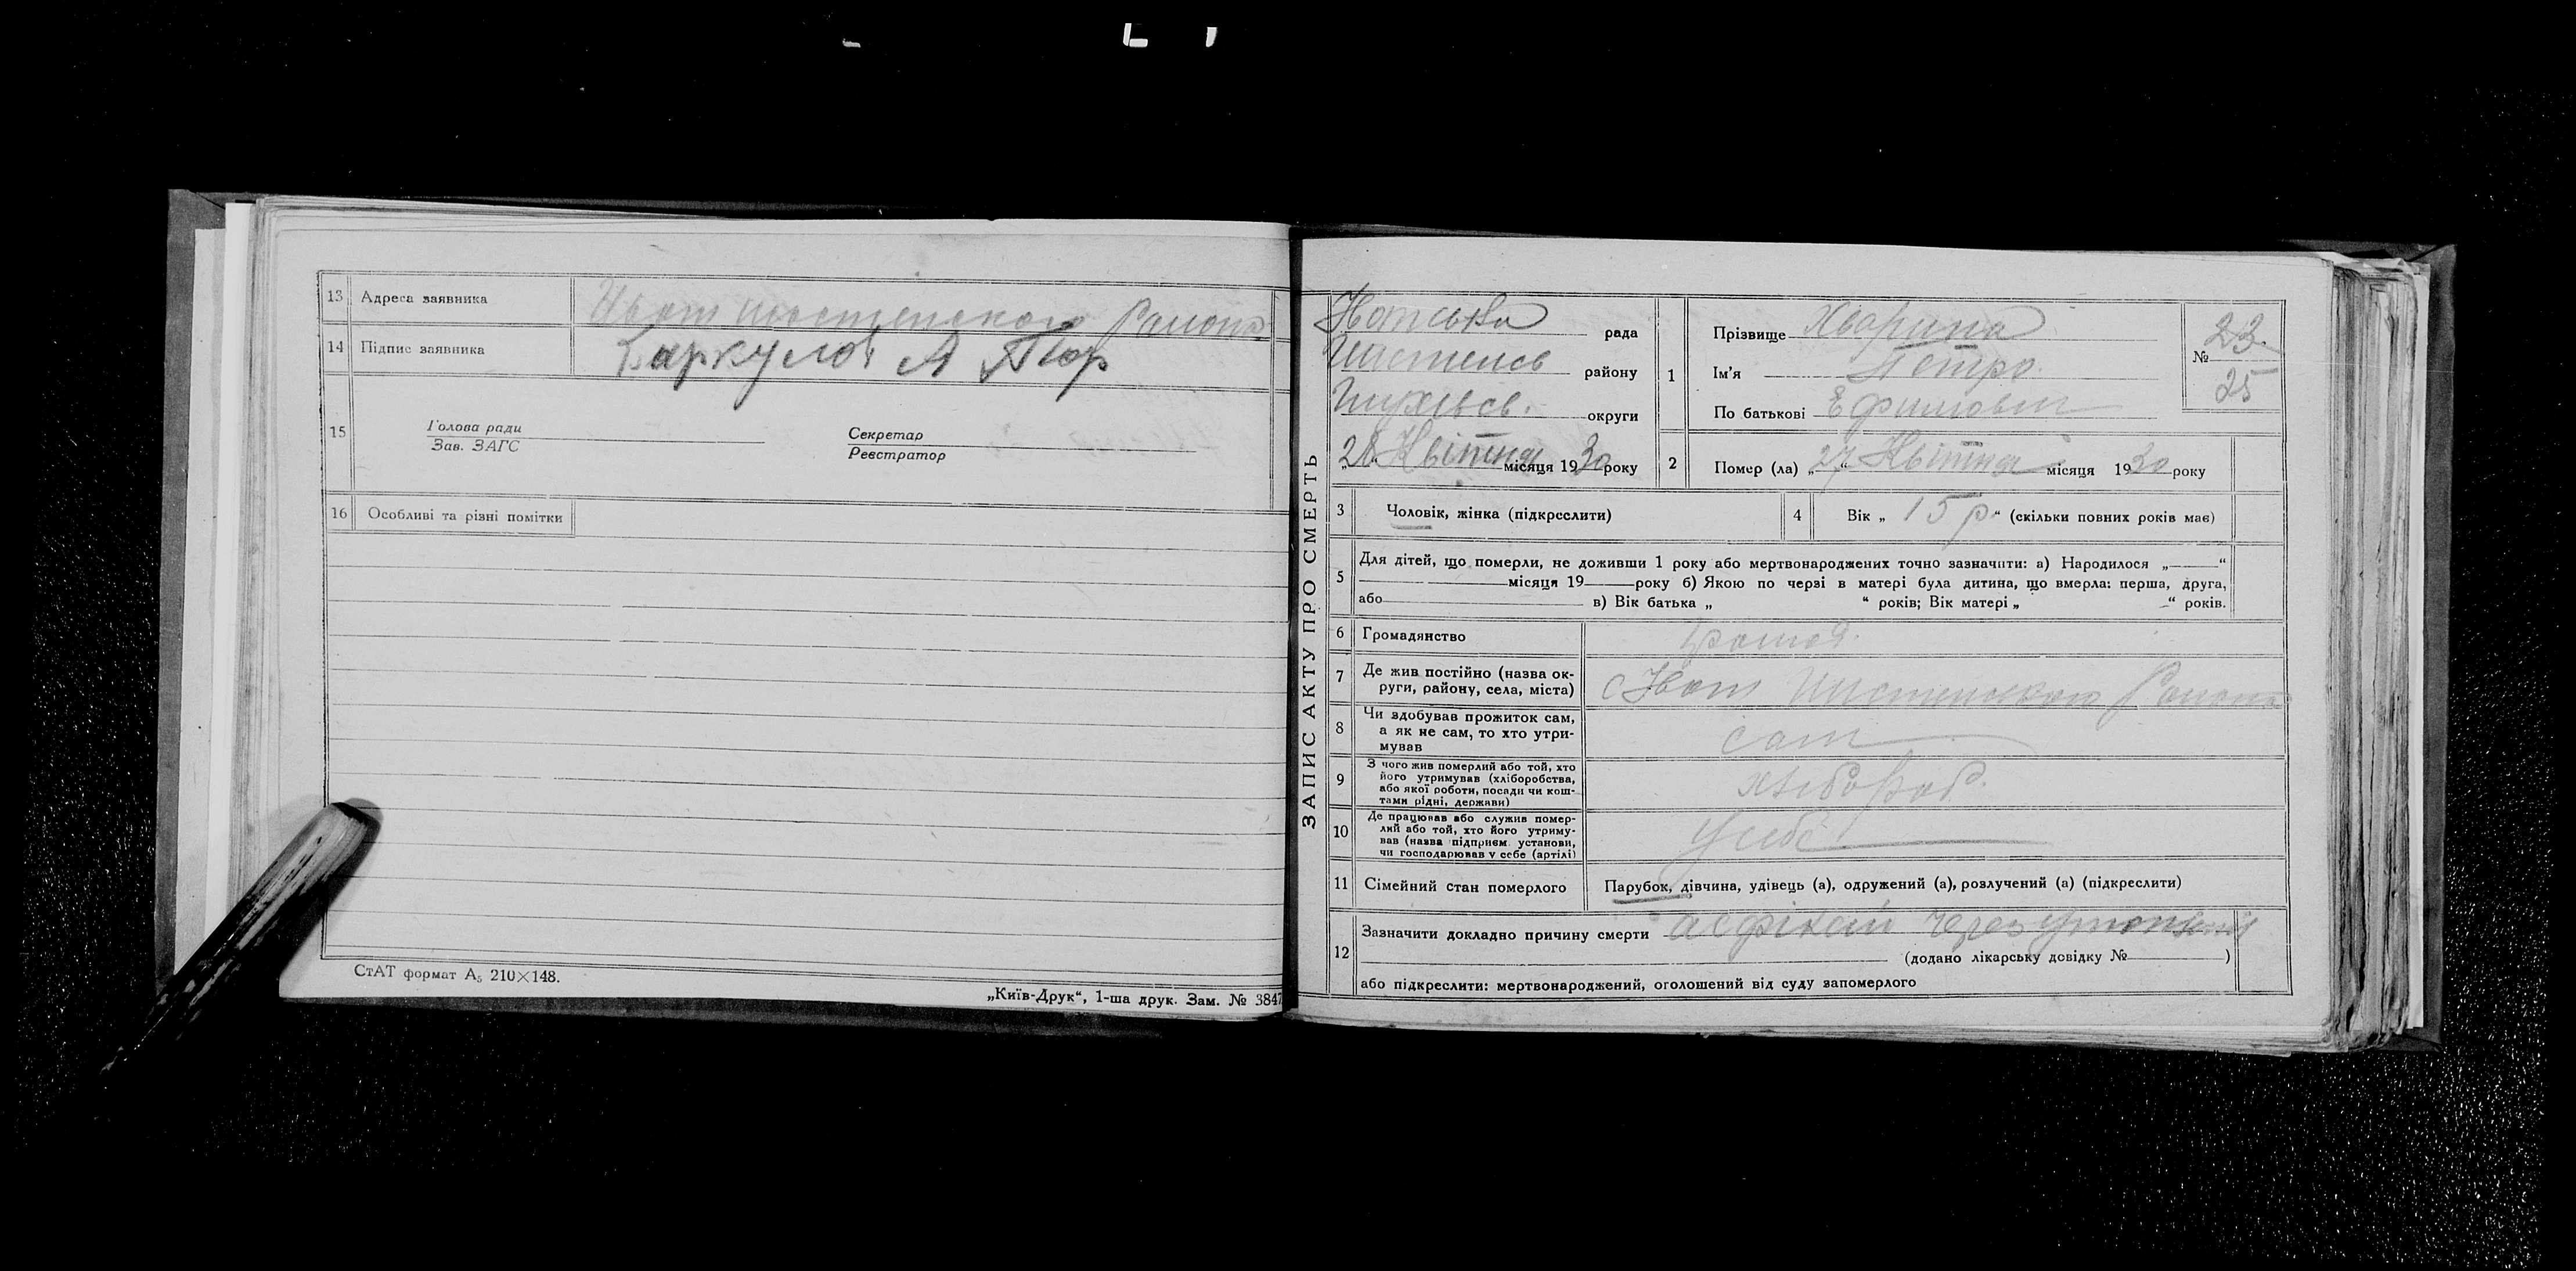 13 Адреса заявника Ивот Шостенского Района
14 Підпис заявника
15 Голова ради
Зав. ЗАГС
Секретар
Реєстратор
16 Особливі та різні помітки
СтАТ формат А₅ 210×148.
„Київ-Друк“, 1-ша друк. Зам. № 3847
ЗАПИС АКТУ ПРО СМЕРТЬ
рада
району
Глухівсь. округи
28 Квітня місяця 1930 року
1 Прізвище
Ім'я Петро
По батькові Ефимович
№ 23
25
2 Помер (ла) „27“ Квітня місяця 1930 року
3 Чоловік, жінка (підкреслити)
4 Вік „15 р“ (скільки повних років має)
5 Для дітей, що померли, не доживши 1 року або мертвонароджених точно зазначити: а) Народилося „ “
місяця 19 року б) Якою по черзі в матері була дитина, що вмерла: перша, друга,
або в) Вік батька „ “ років; Вік матері „ “ років.
6 Громадянство
7 Де жив постійно (назва ок-
руги, району, села, міста) с Ивот Шостенского Района
8 Чи здобував прожиток сам,
а як не сам, то хто утри-
мував сам
9 З чого жив померлий або той, хто
його утримував (хліборобства,
або якої роботи, посади чи кош-
тами рідні, держави) хлібороб.
10 Де працював або служив помер-
лий або той, хто його утриму-
вав (назва підприєм. установи,
чи господарював у себе (артілі) у себе
11 Сімейний стан померлого Парубок, дівчина, удівець (а), одружений (а), розлучений (а) (підкреслити)
12 Зазначити докладно причину смерти через
(додано лікарську довідку № )
або підкреслити: мертвонароджений, оголошений від суду запомерлого